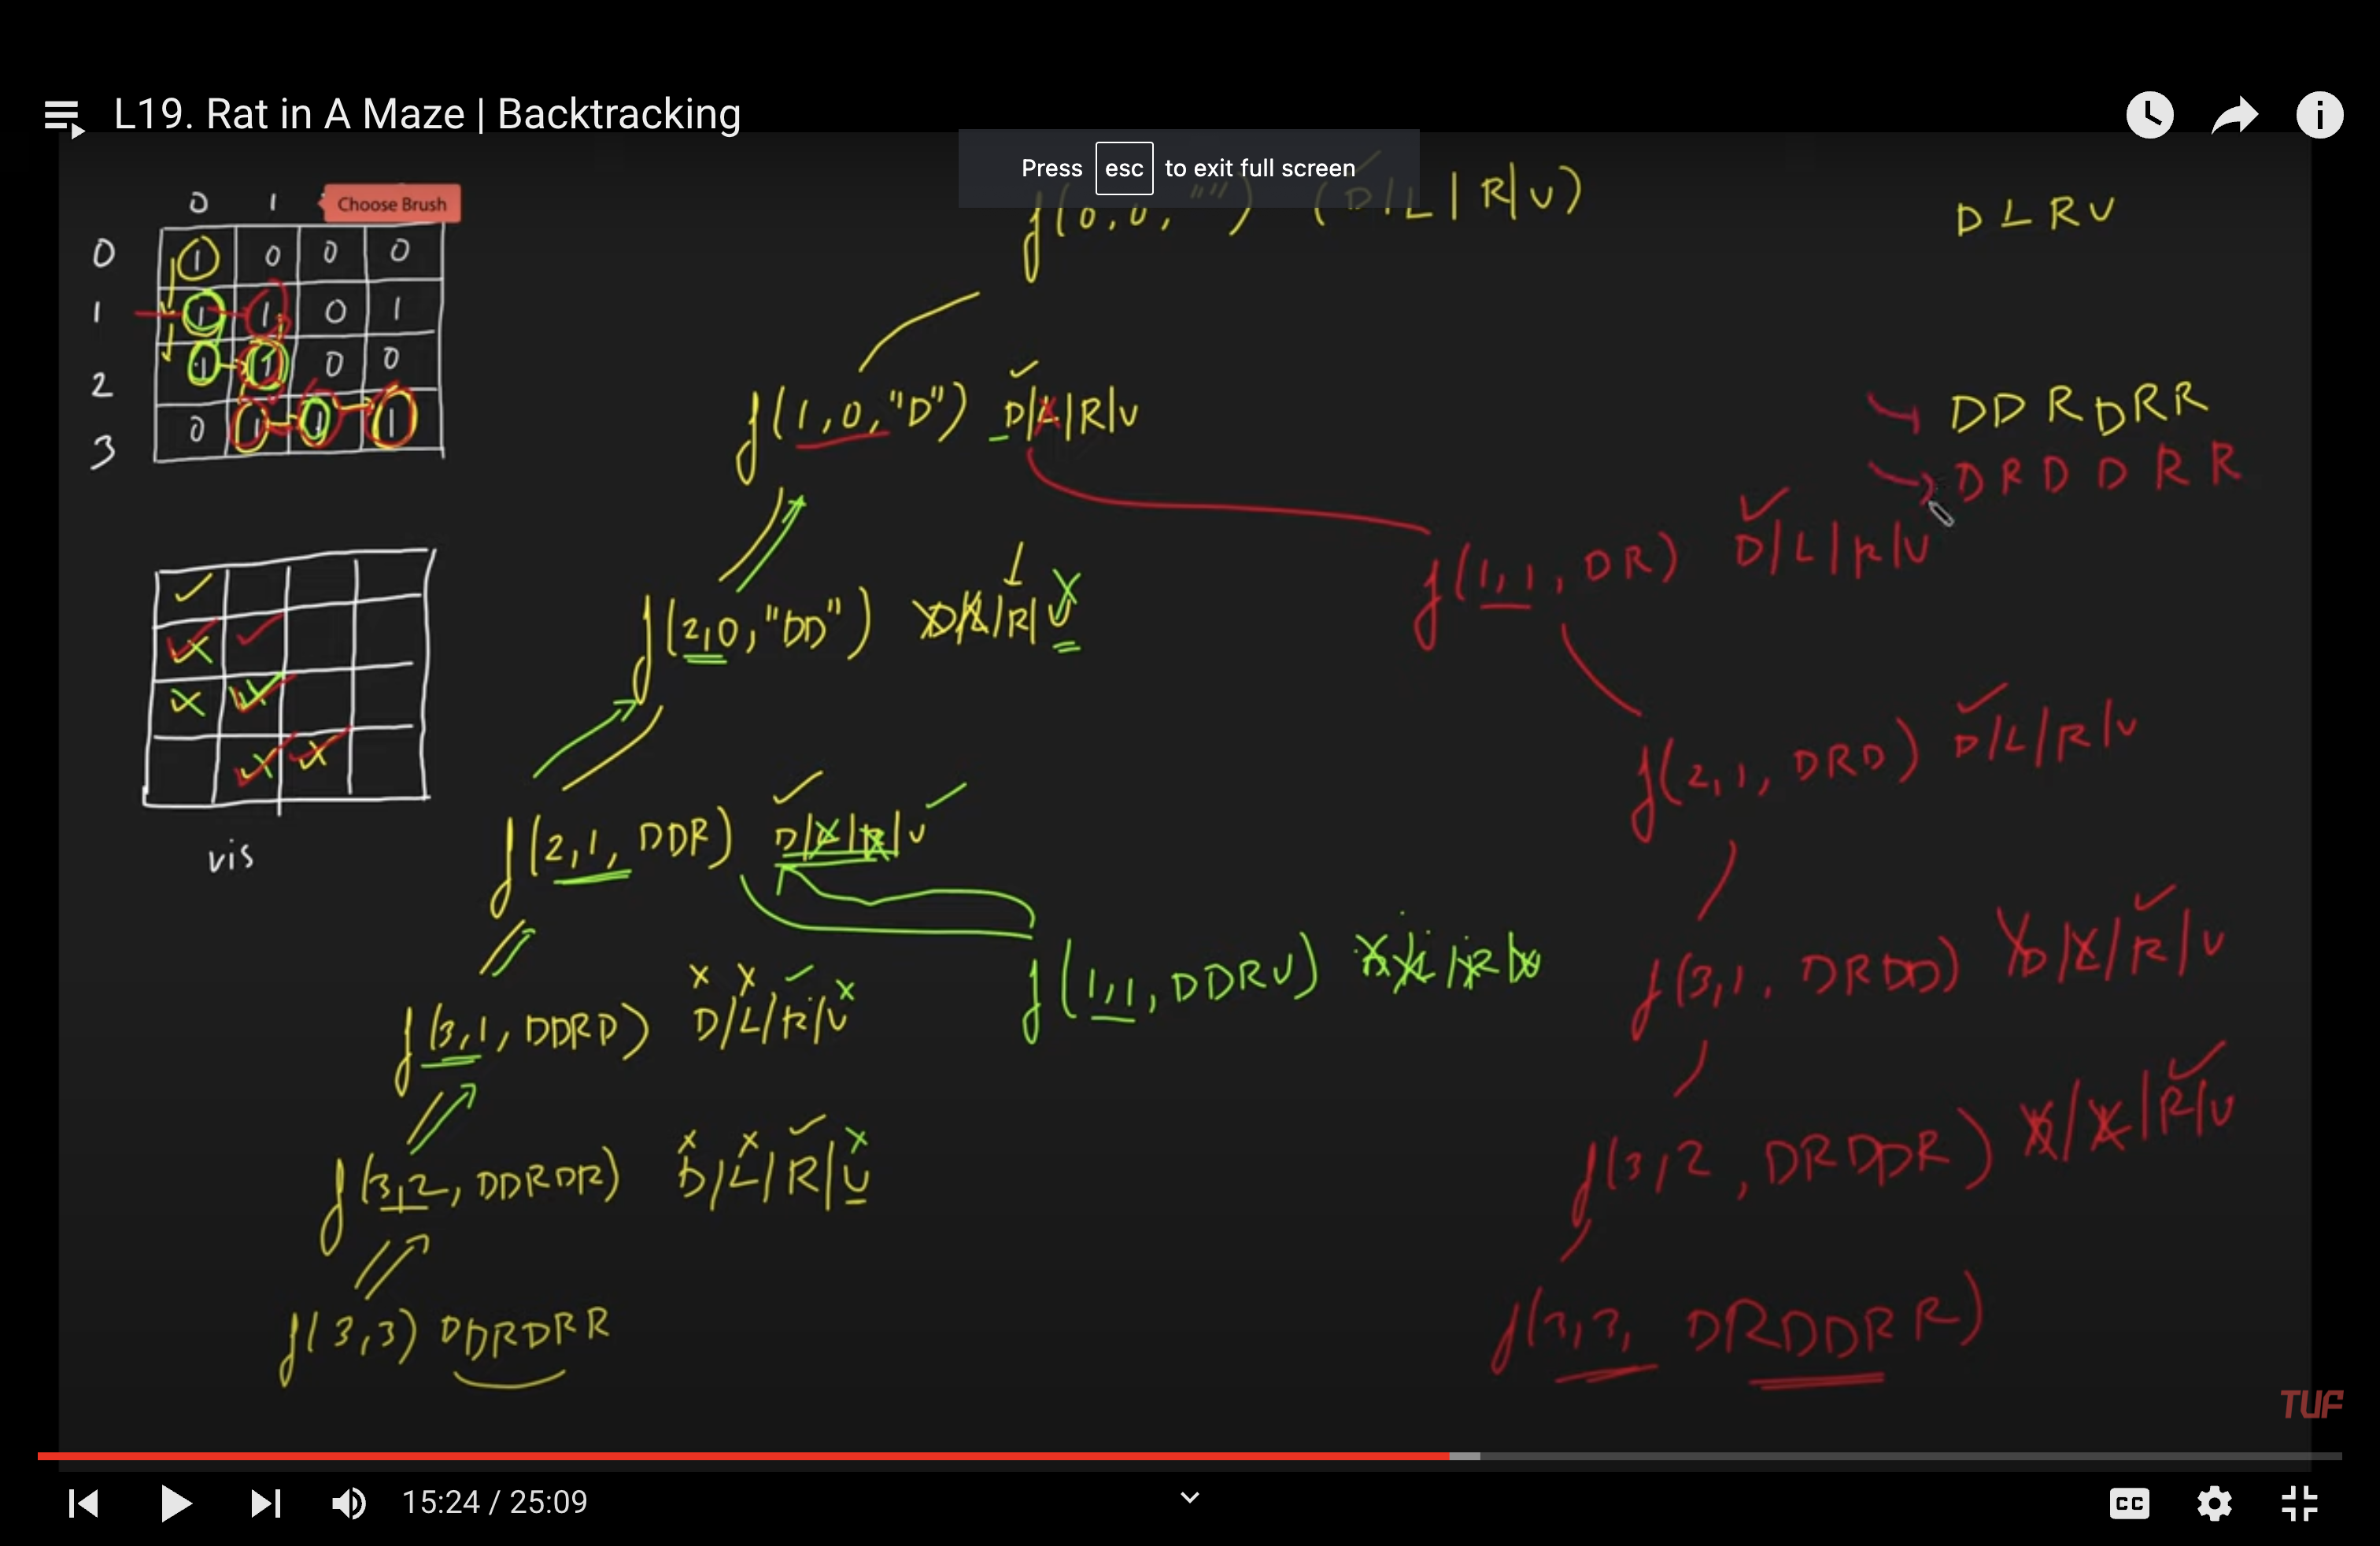 L19. Rat in A Maze | Backtracking
Press esc to exit full screen
Choose Brush
0 1
0 1 0 0 0
1 1 1 0 1
2 1 1 0 0
3 0 1 1 1
vis
f(0,0,"") (D/L|R|U)
DLRU
f(1,0,"D") D|L|R|U
DDRDRR
DRDDRR
f(1,1,DR) D/L/R/U
f(2,0,"DD") D/L/R|U
f(2,1,DRD) D/L/R/U
f(2,1,DDR) D/L/R/U
f(3,1,DRDD) D/L/R/U
f(1,1,DDRU) D/L/R/U
f(3,1,DDRD) D/L/R/U
f(3,2,DRDDR) D/L/R/U
f(3,2,DDRDR) D/L/R/U
f(3,3) DDRDRR
f(3,3, DRDDRR)
TUF
15:24 / 25:09
CC